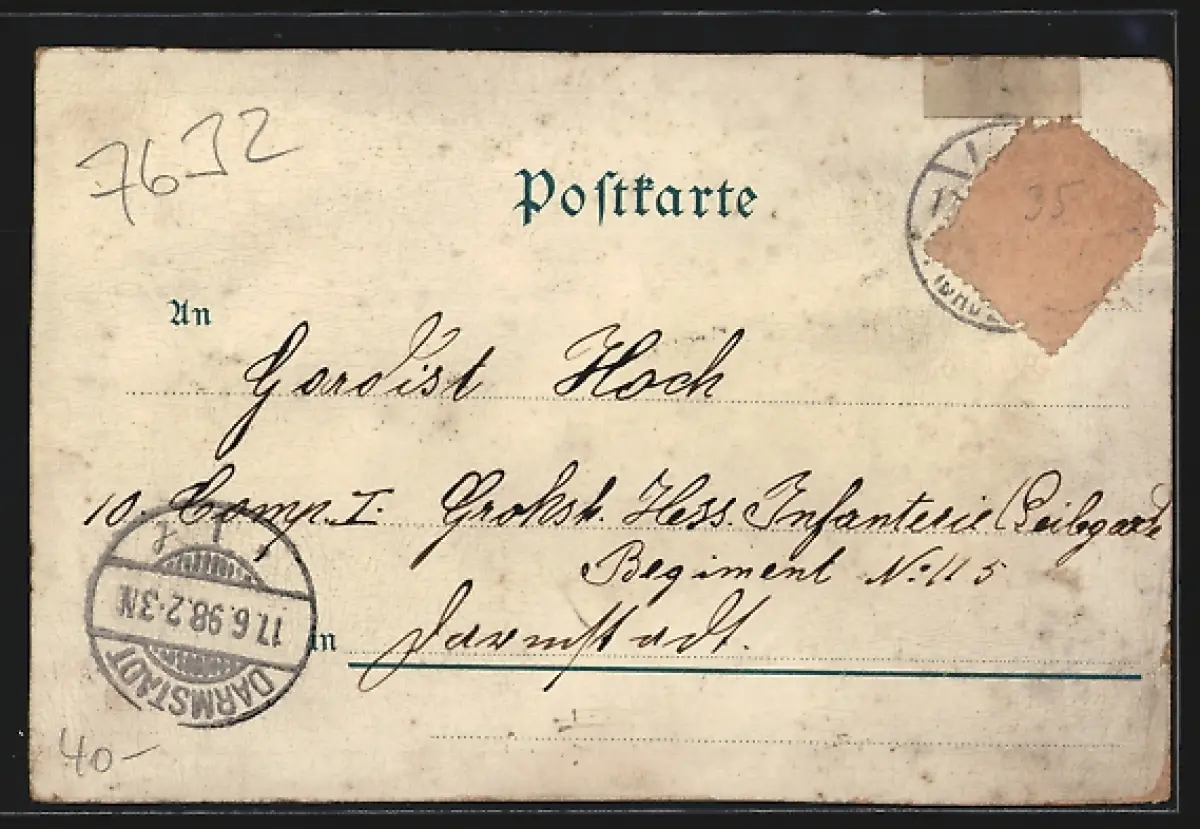 7632
Postkarte
35
An
Gardist Hoch
10. Comp. I. Großh. Hess. Infanterie (Leibgarde
Regiment No. 115
in Darmstadt.
DARMSTADT
17.6.98.2-3N
40-